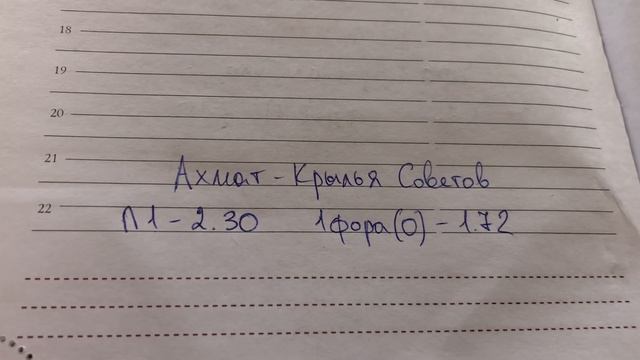 18
19
20
21
Ахмат - Крылья Советов
22
П1 - 2.30 1фора(0) - 1.72